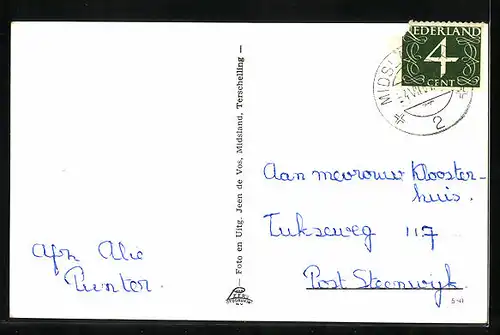 NEDERLAND
4
CENT
MIDSL
2
— Foto en Uitg. Jeen de Vos, Midsland, Terschelling —
Aan mevrouw Klooster-
huis.
Tukseweg 117
Post Steenwijk
Afz Alie
Punter.